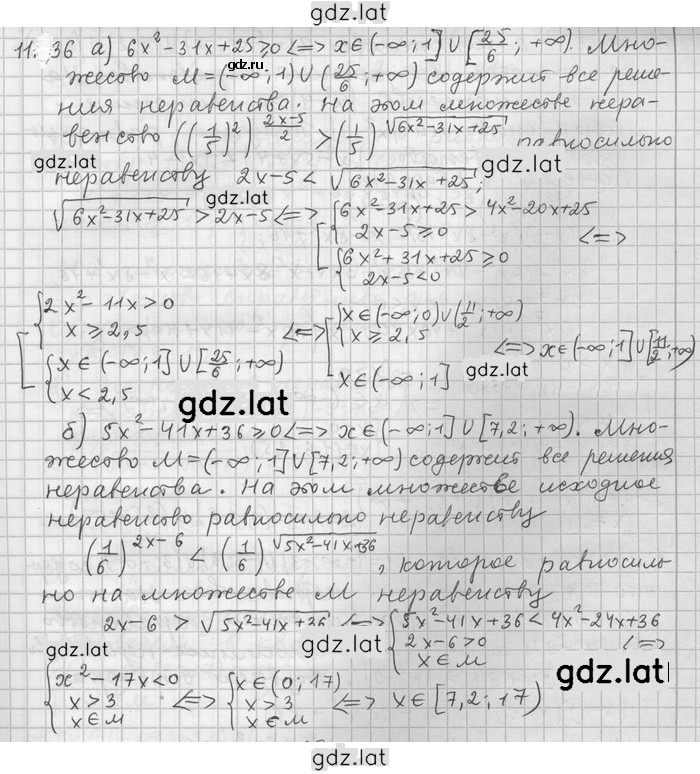 gdz.lat
11.36 а) 6x²-31x+25≥0 <=> x∈(-∞;1]∪[25/6; +∞). Мно-
жесово M=(-∞;1)∪(25/6;+∞) содержит все реше-
ния неравенства. На этом множестве нера-
венство ((1/5)²)^((2x-5)/2) > (1/5)^√(6x²-31x+25) равносильно
gdz.lat
gdz.lat
неравенству 2x-5 < √(6x²-31x+25);
gdz.lat
√(6x²-31x+25) > 2x-5 <=> [ { 6x²-31x+25 > 4x²-20x+25
2x-5≥0
{ 6x²+31x+25≥0
2x-5<0
<=>
[ { 2x²-11x>0
x≥2,5
{ x∈(-∞;1]∪[25/6;+∞)
x<2,5
<=> [ { x∈(-∞;0)∪(11/2;+∞)
x≥2,5
x∈(-∞;1]
<=> x∈(-∞;1]∪[11/2;+∞)
gdz.lat
gdz.lat
б) 5x²-41x+36≥0 <=> x∈(-∞;1]∪[7,2;+∞). Мно-
жесово M=(-∞;1]∪[7,2;+∞) содержит все решения
gdz.lat
неравенства. На этом множестве исходное
неравенсво равносильно неравенству
(1/6)^(2x-6) < (1/6)^√(5x²-41x+36), которое равносиль-
gdz.lat
но на множестве M неравенству
2x-6 > √(5x²-41x+36) <=> { 5x²-41x+36 < 4x²-24x+36
2x-6>0
x∈M
<=>
gdz.lat
gdz.lat
gdz.lat
{ x²-17x<0
x>3
x∈M
<=> { x∈(0;17)
x>3
x∈M
<=> x∈[7,2;17)
gdz.lat
gdz.lat
gdz.lat